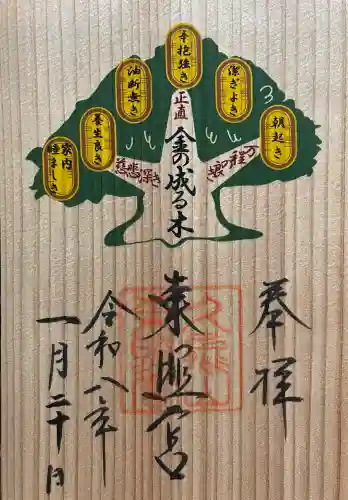 辛抱強き
油断無き
潔ぎよき
養生良き
朝起き
家内
睦ましき
正直
慈悲深き
万
程
の良き
金の成る木
奉拝
東照宮
令和八年
一月二十日